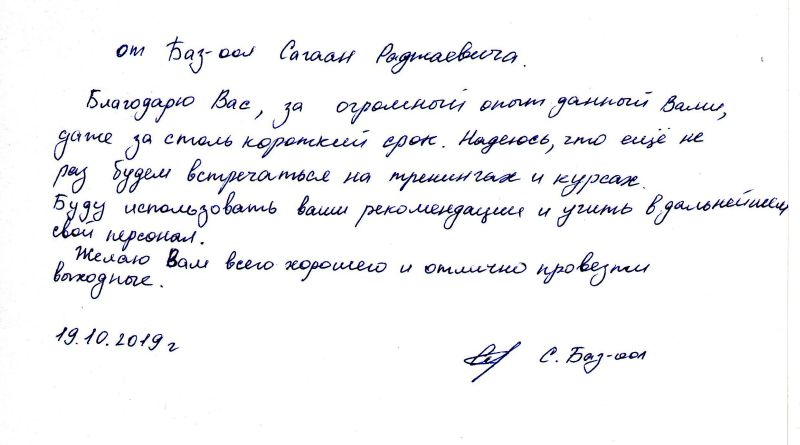 от Баз-оол Сагаан Раджаевича.
Благодарю Вас, за огромный опыт данный Вами,
даже за столь короткий срок. Надеюсь, что ещё не
раз будем встречаться на тренингах и курсах.
Буду использовать ваши рекомендации и учить в дальнейшем
свой персонал.
Желаю Вам всего хорошего и отлично провезти
выходные.
19.10.2019 г
С. Баз-оол